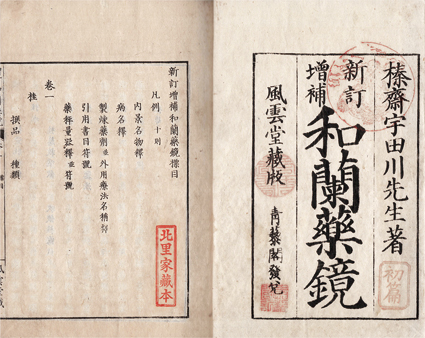 榛齋宇田川先生著
初篇
新訂
增補
和蘭藥鏡
風雲堂藏版
青藜閣發兌
新訂增補和蘭藥鏡標目
凡例 十則
内景名物釋
病名釋
製煉藥劑並外用療法名稱釋
引用書目符號
藥秤量匙釋並符號
卷一
桂
撰品 種類
北里家藏本